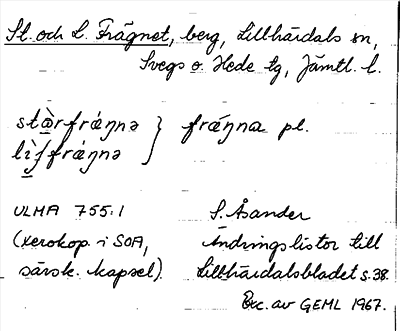 St. och L. Frägnet, berg, Lillhärdals sn,
Svegs o. Hede tg, Jämtl. l.
stæ̀rfráŋnə } fráŋna pl.
lìſfráŋnə
ULMA 755:1 S. Åsander
(xerokop. i SOA, Ändringslistor till
särsk. kapsel). Lillhärdalsbladet s. 38.
Exc. av GEML 1967.